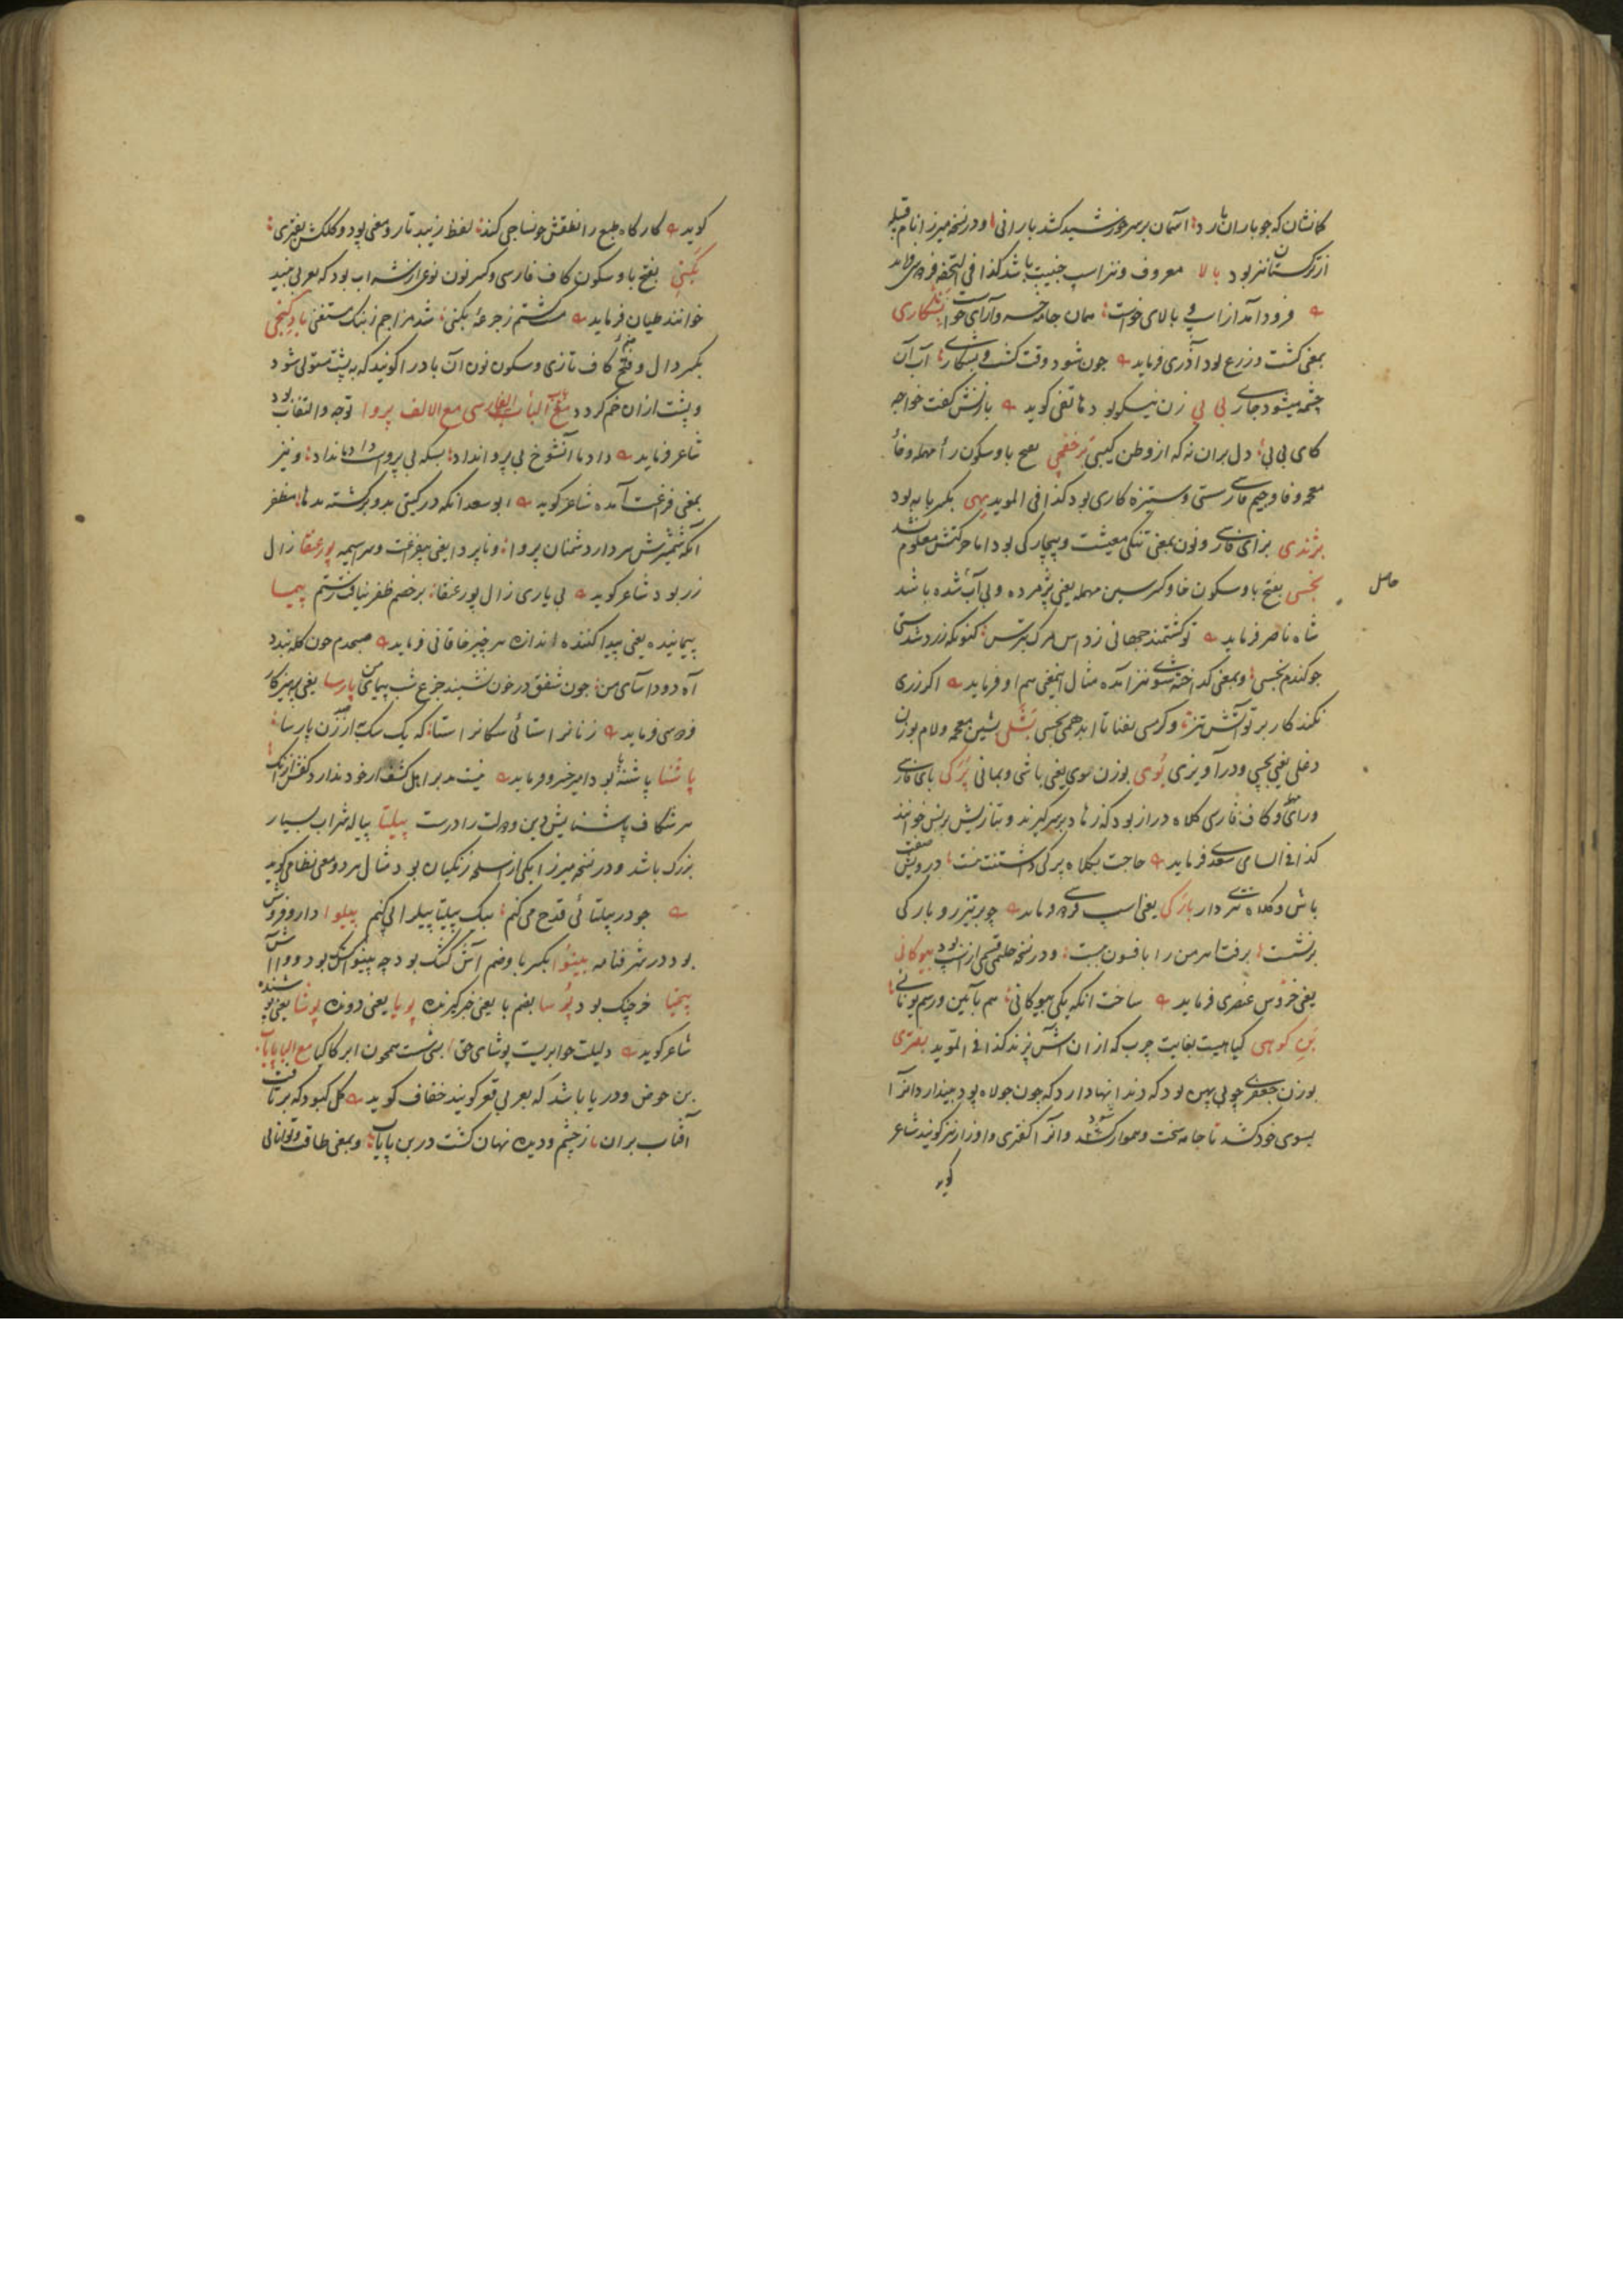 کانشان که جو باران بارد آسمان بر سر خورشید کشد بارانی و در نسخه میرزا نام قبیله
از ترکستان نیز بود بالا معروف و نیز اسپ جنیبت باشد کذا فی التحفه فردوسی فرماید
فرود آمد از اسپ و بالای خواست همان جامه خسرو آرای خواست بشکاری
بمعنی کشت و زرع بود آذری فرماید جون شود وقت کشت و بشکاری آب آن
چشمه میشود جاری بی بی زن نیکو بود هاتفی کوید با زنش کفت خواجه
کای بی بی دل بران نه که از وطن کیبی برخفجی بفتح با و سکون راء مهمله و خاء
معجمه و فا و جیم فارسی سستی و ستیزه کاری بود کذا فی الموید بهی بکسر با به بود
بژندی بزای فارسی و نون بمعنی تنکی معیشت و بیچارکی بود اما حرکتش معلوم نشد
بخسی بفتح با و سکون خا و کسر سین مهمله یعنی پژمرده و بی آب شده باشد
شاه ناصر فرماید تو کشتمند جهانی ز داس مرک بترس کنونکه زرد شدستی
جو کندم بخسی و بمعنی کداخته شوی نیز آمده مثال اینمعنی هم او فرماید اکر زری
نکند کار بر تو آتش تیز و کر مسی بفنا تا ابد همی بخسی بشلی بشین معجمه و لام بوزن
دغلی یعنی بچسپی و در آویزی بوی بوزن موی یعنی باشی و بمانی برکی بای فارسی
و رای و کاف فارسی کلاه دراز بود که زهاد بر سر کیرند و بتازیش برنس خوانند
کذا فی السامی سعدی فرماید حاجت بکلاه برکی داشتنت نیست درویش صفت
باش و کلاه تتری دار بارکی یعنی اسپ فردوسی فرماید چو بر تیزرو بارکی
برنشست برفت اهرمن را بافسون ببست و در نسخه حلیمی قسمی از اسپ بود بیوکانی
یعنی عروسی عنصری فرماید ساخت انکه یکی بیوکانی هم بآیین و رسم یونانی
بن کوهی کیاهیست بغایت چرب که از ان آش پزند کذا فی الموید بفتری
بوزن جعفری چوبی پهن بود که دندانها دارد که چون جولاه پود بیندازد انرا
بسوی خود کشد تا جامه سخت و هموار شود و انرا کفتری و افزار نیز کویند شاعر
کوید
حاصل
کوید کارکاه طبع را نطقش جو نساجی کند لفظ زیبد تار و معنی پود و کلکش بفتری
بکنی بفتح با و سکون کاف فارسی و کسر نون نوعی از شراب بود که بعربی نبیذ
خوانند طیان فرماید مست کشتم ز جرعه بکنی شد مزاجم ز بنک مستغنی باد کنجی
بکسر دال و فتح کاف تازی و سکون نون آن باد را کویند که به پشت مستولی شود
و پشت ازان خم کردد مع الباء الفارسی مع الالف پروا توجه و التفات بود
شاعر فرماید داد ما آنشوخ بی پروا نداد بسکه بی پرواست داد ما نداد و نیز
بمعنی فراغت آمده شاعر کوید ابو سعد انکه در کیتی بدو برکشته شد بدها مظفر
انکه شمشیرش سر دارد شمنان پروا و ناپروا یعنی بیفراغت و سراسیمه پور عنقا زال
زر بود شاعر کوید بی یاری زال پور عنقا بر خصم ظفر نیافت رستم پیما
پیماینده یعنی پیدا کننده اندازه هر چیز خاقانی فرماید صبحدم جون کله بندد
آه دود آسای من جون شفق در خون نشیند جزع شب پیمای من پارسا یعنی پرهیزکار
فردوسی فرماید زنانرا ستائی سکانرا ستا که یک سک به از صد زن پارسا
پاشنا پاشنه بود امیر خسرو فرماید
هر شکاف پاشنایش دین و دولت را درست پیلپا پیاله شراب بسیار
بزرک باشد و در نسخه میرزا یکی از اسلحه زنکیان بود مثال هر دو معنی نظامی کوید
جو در پیلپائی قدح می کنم بیک پیلپا پیل را پی کنم پیلوا داروفروش
بود در شرفنامه پینوا بکسر با و ضم آش کشک بود چه پینو کشک بود و وا آش
پیخپا خرچنک بود پورسا بضم با یعنی خبر کیرنده پویا یعنی دونده پوشا یعنی پوشنده
شاعر کوید دلیلت جو ابریست پوشای حق همچون ابر کاکیا مع البا پایاب
بن حوض و دریا باشد که بعربی قعر کویند خفاف کوید کل کبود که برتافت
آفتاب بران ز چشم و دیده نهان کشت در بن پایاب و بمعنی طاقت و توانائی